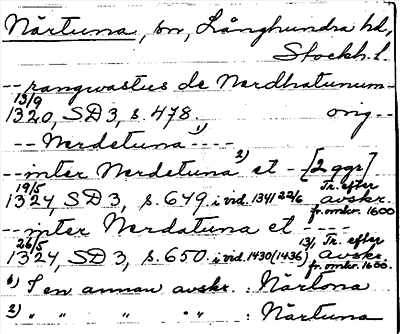 Närtuna, sn, Långhundra hd,
Stockh. l.
-- rangwastus de Nerdhatunum --
13/9
1320, SD 3, s. 478. orig --
-- Nerdetuna 1) ----
-- inter Nerdetuna 2) et - [2 ggr]
19/5 Tr. efter
1324, SD 3, s. 649 i vid. 1341 22/6 avskr.
fr. omkr. 1600
-- inter Nerdatuna et ----
26/5 13/1 Tr. efter
1324, SD 3, s. 650 i vid. 1430 (1436) avskr.
fr. omkr. 1600.
1) I en annan avskr. : Närtona
2) " " " " " : Närtuna